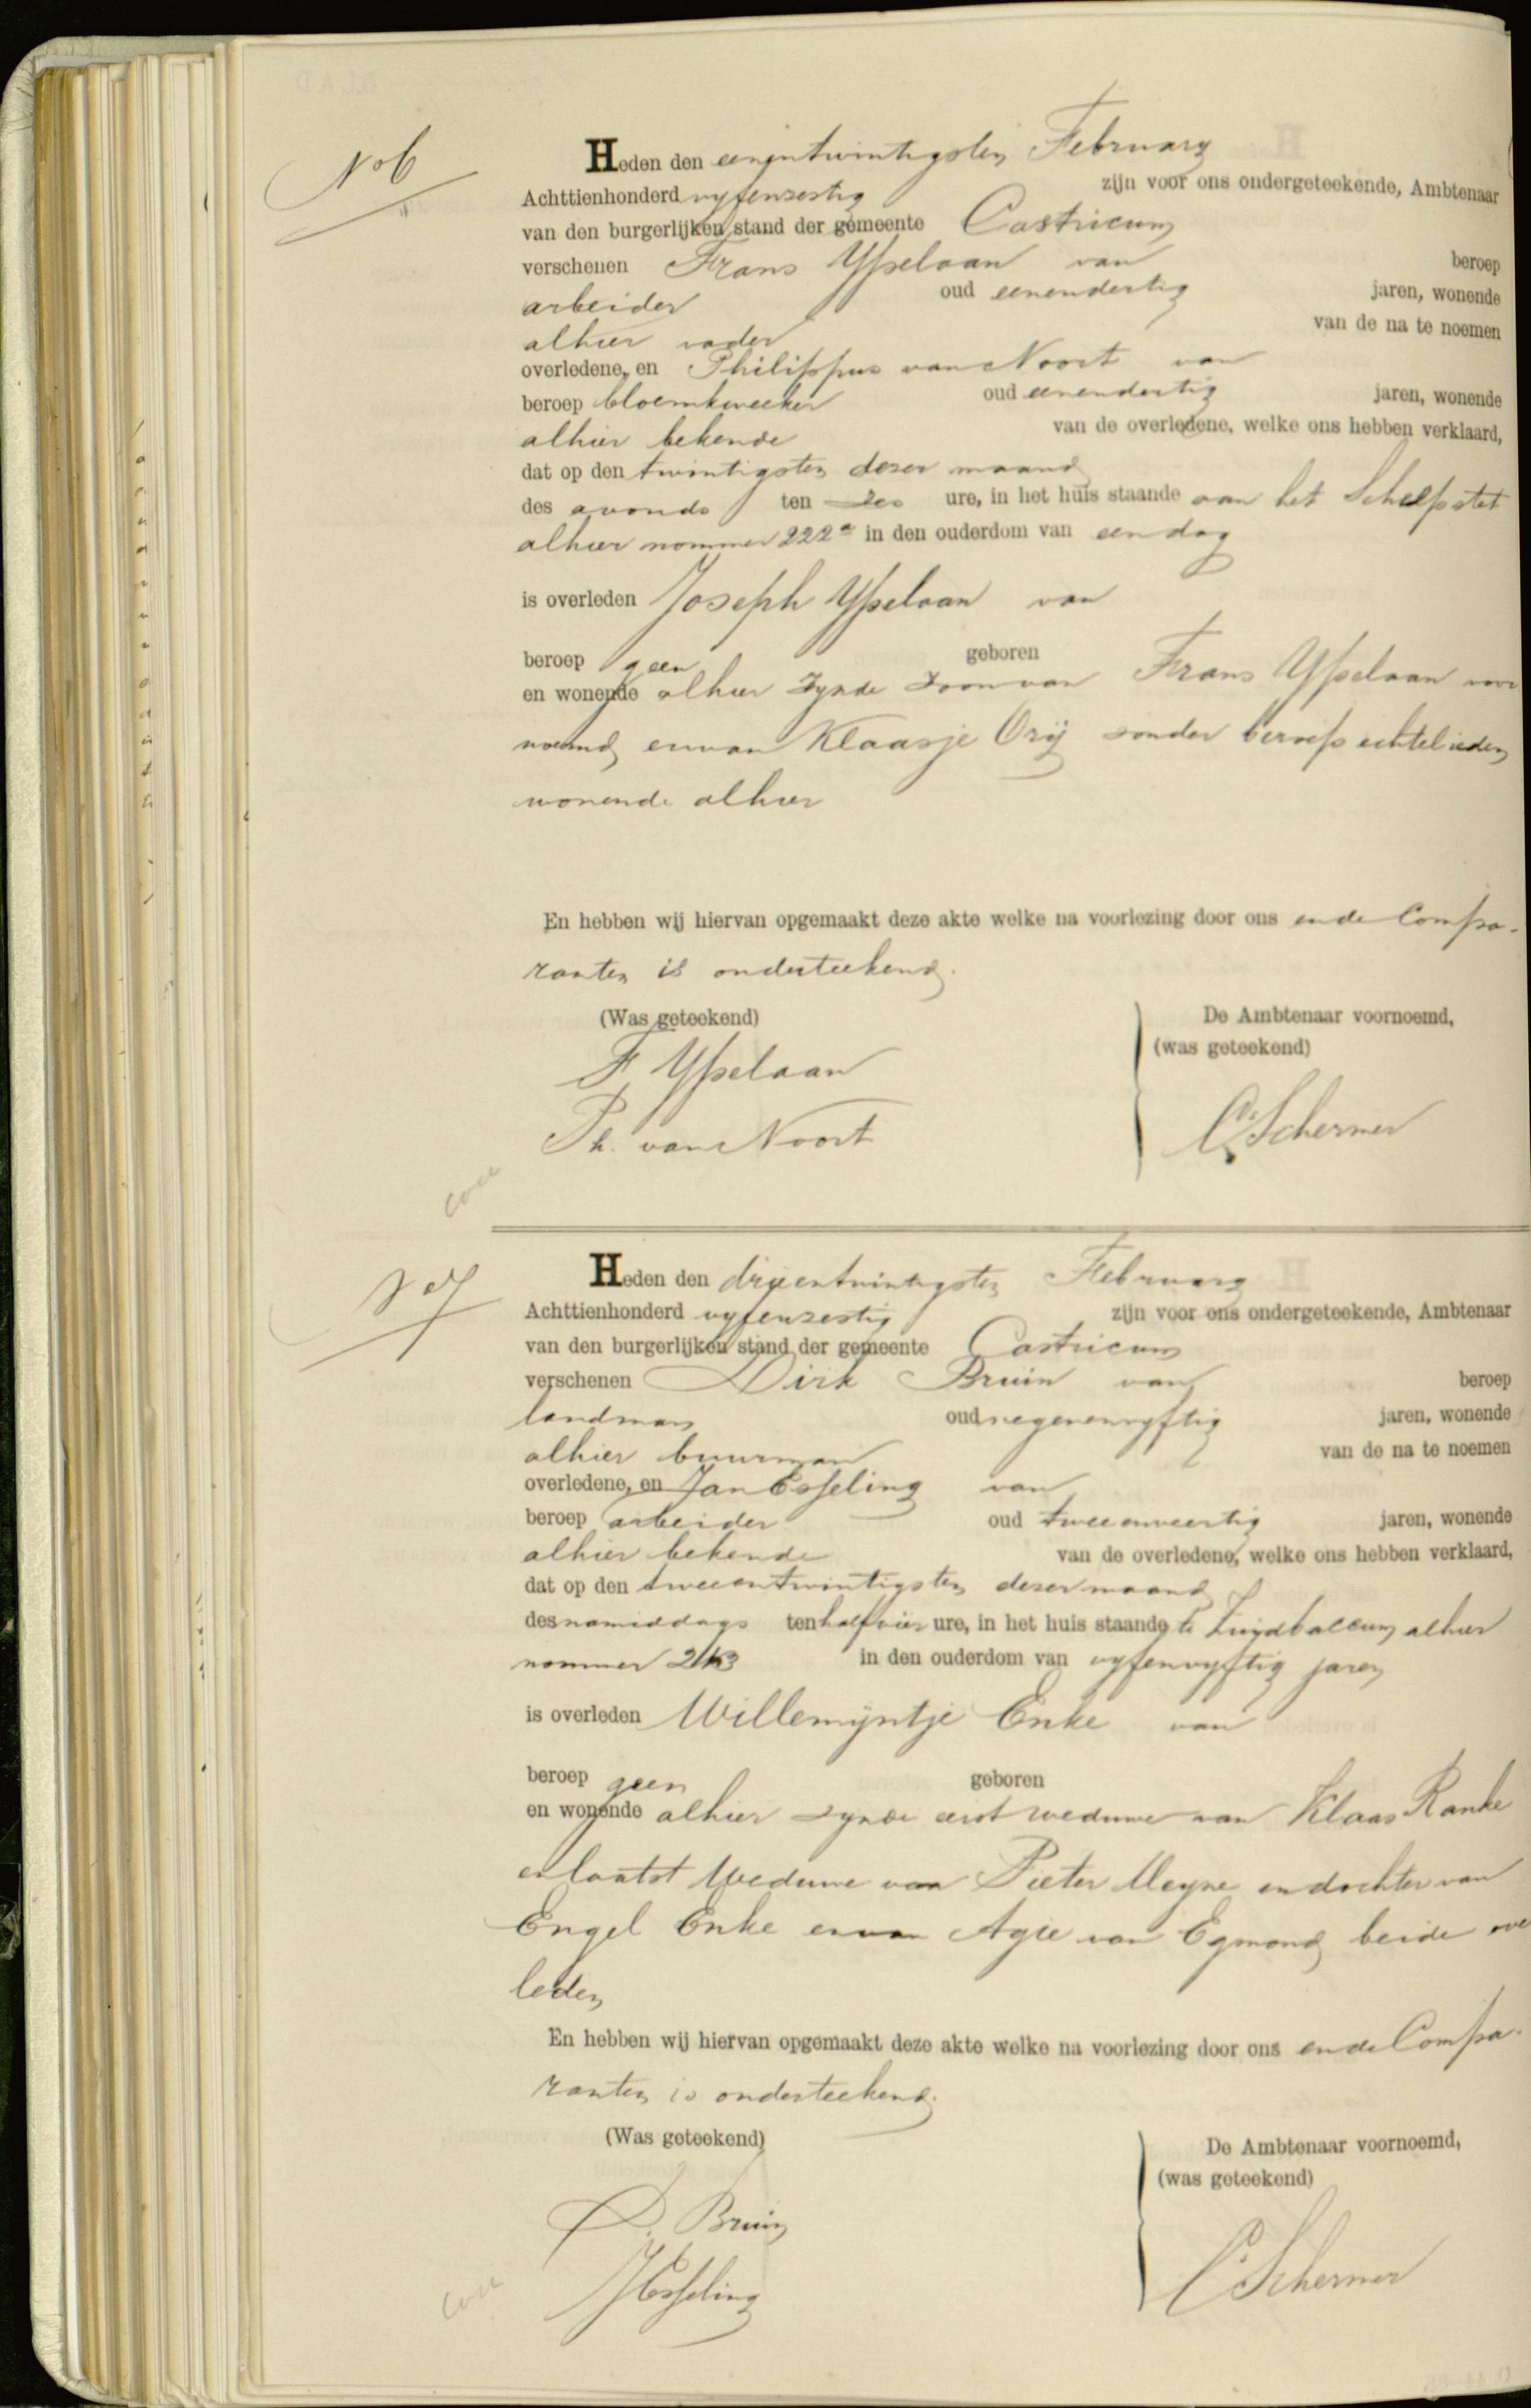 No 6
Heden den eenentwintigsten February
Achttienhonderd vyfenzestig zijn voor ons ondergeteekende, Ambtenaar
van den burgerlijken stand der gemeente Castricum
verschenen Frans Ypelaan van beroep
arbeider oud eenendertig jaren, wonende
alhier vader van de na te noemen
overledene, en Philippus van Noort van
beroep bloemkweeker oud eenendertig jaren, wonende
alhier bekende van de overledene, welke ons hebben verklaard,
dat op den twintigsten dezer maand
des avonds ten zes ure, in het huis staande aan het Schulpstet
alhier nommer 222a in den ouderdom van een dag
is overleden Joseph Ypelaan van
beroep geen geboren
en wonende alhier zynde zoon van Frans Ypelaan voor
noemd en van Klaasje Orij zonder beroep echtelieden
wonende alhier
En hebben wij hiervan opgemaakt deze akte welke na voorlezing door ons en de Compa-
ranten is onderteekend.
(Was geteekend) De Ambtenaar voornoemd,
(was geteekend)
F Ypelaan
Ph. van Noort C. Schermer
No 7
Heden den drieentwintigsten February
Achttienhonderd vyfenzestig zijn voor ons ondergeteekende, Ambtenaar
van den burgerlijken stand der gemeente Castricum
verschenen Dirk Bruin van beroep
landman oud negenenvyftig jaren, wonende
alhier buurman van de na te noemen
overledene, en Jan Esseling van
beroep arbeider oud tweeenveertig jaren, wonende
alhier bekende van de overledene, welke ons hebben verklaard,
dat op den tweeentwintigsten dezer maand
des namiddags ten half vier ure, in het huis staande te Zuydbaccum alhier
nommer in den ouderdom van vyfenvyftig jaren
is overleden Willemijntje Enke van
beroep geen geboren
en wonende alhier zynde eerst weduwe van Klaas Ranke
en laatst Weduwe van Pieter Meyne en dochter van
Engel Enke en van Agie van Egmond beide over
leden
En hebben wij hiervan opgemaakt deze akte welke na voorlezing door ons en de Compa-
ranten is onderteekend.
(Was geteekend) De Ambtenaar voornoemd,
(was geteekend)
D. Bruin
J Esseling C. Schermer